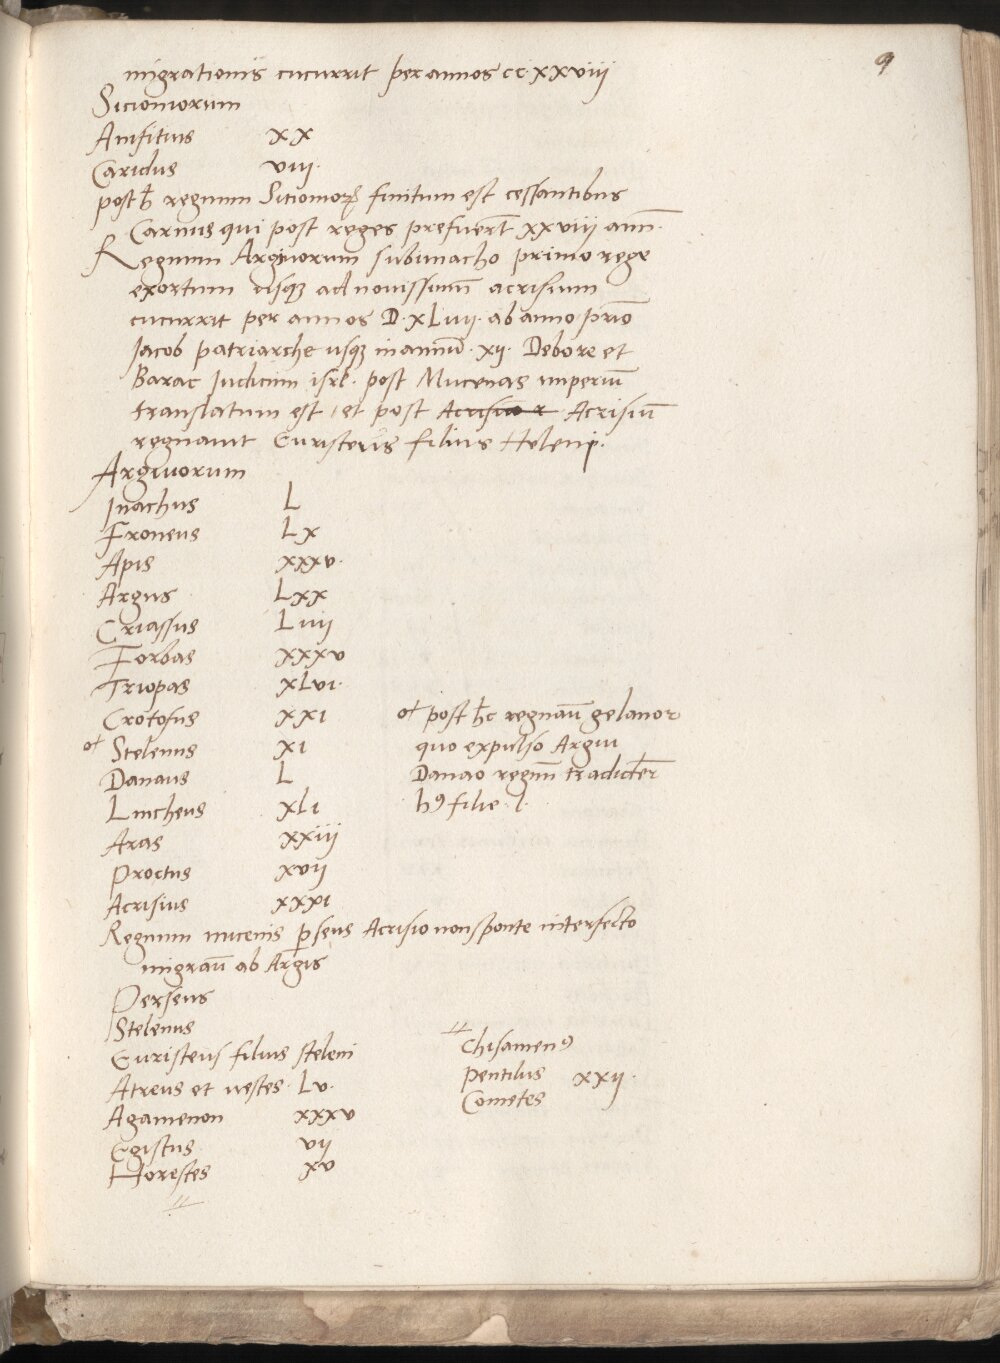 9
migrationis cucurrit per annos cc.xxviij
Sicioniorum
Amfitus xx
Caridus viij.
post h̄ regnum Sitiomoꝝ finitum est cessantibus
Carnus qui post reges prefuer̄t xxviij ann̄.
Regnum Argiuorum subinacho primo rege
exortum usqꝫ ad nouissimū acrisium
cucurrit per annos D.xLiiij. ab anno primo
Jacob patriarche usqꝫ in annū.xij. Debore et
Barac Judicum isrl̄. post Mucenas imperiū
translatum est / et post Acrisiū
regnauit Euristeus filius Helenij.
Argiuorum
Inachus L
Froneus Lx
Apis xxxv.
Argus Lxx
Criassus Liiij
Forbas xxxv
Triopas xLvi.
Crotofus xxi
Stelenus xi
Danaus L
Lincheus xLi
Aras xxiij
Proctus xvij
Acrisius xxxi
post h̄c regnaū gelanor
quo expulso Argiui
Danao regnū tradider̄
h9 filie .l.
Regnum micenis ꝑseus Acrisio non sponte interfecto
migraū ab Argis
Perseus
Stelenus
Euristeus filius steleni
Atreus et uestes. Lv.
Agamenon xxxv
Egistus vij
Horestes xv
Chisamen9
Pentilus xxij.
Cometes